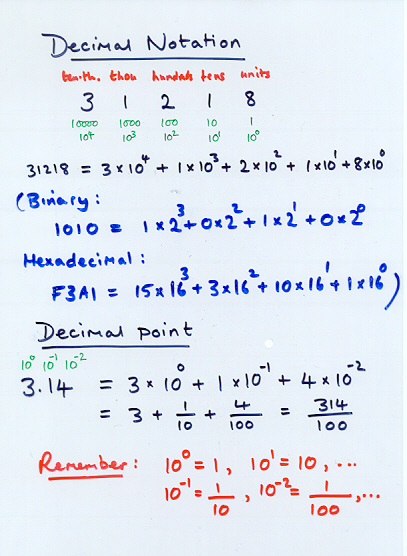 Decimal Notation
ten.th. thou hundreds tens units
3 1 2 1 8
10000 1000 100 10 1
10⁴ 10³ 10² 10¹ 10⁰
31218 = 3×10⁴ + 1×10³ + 2×10² + 1×10¹ + 8×10⁰
(Binary:
1010 = 1×2³ + 0×2² + 1×2¹ + 0×2⁰
Hexadecimal:
F3A1 = 15×16³ + 3×16² + 10×16¹ + 1×16⁰)
Decimal point
10⁰ 10⁻¹ 10⁻²
3.14 = 3×10⁰ + 1×10⁻¹ + 4×10⁻²
= 3 + 1/10 + 4/100 = 314/100
Remember: 10⁰ = 1, 10¹ = 10, ...
10⁻¹ = 1/10, 10⁻² = 1/100, ...